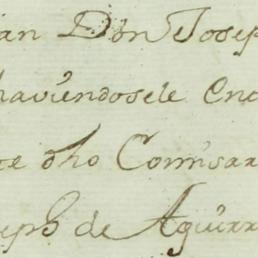 an Don Josep
haviendosele Enc
te dho Comisar
eph de Aguirr